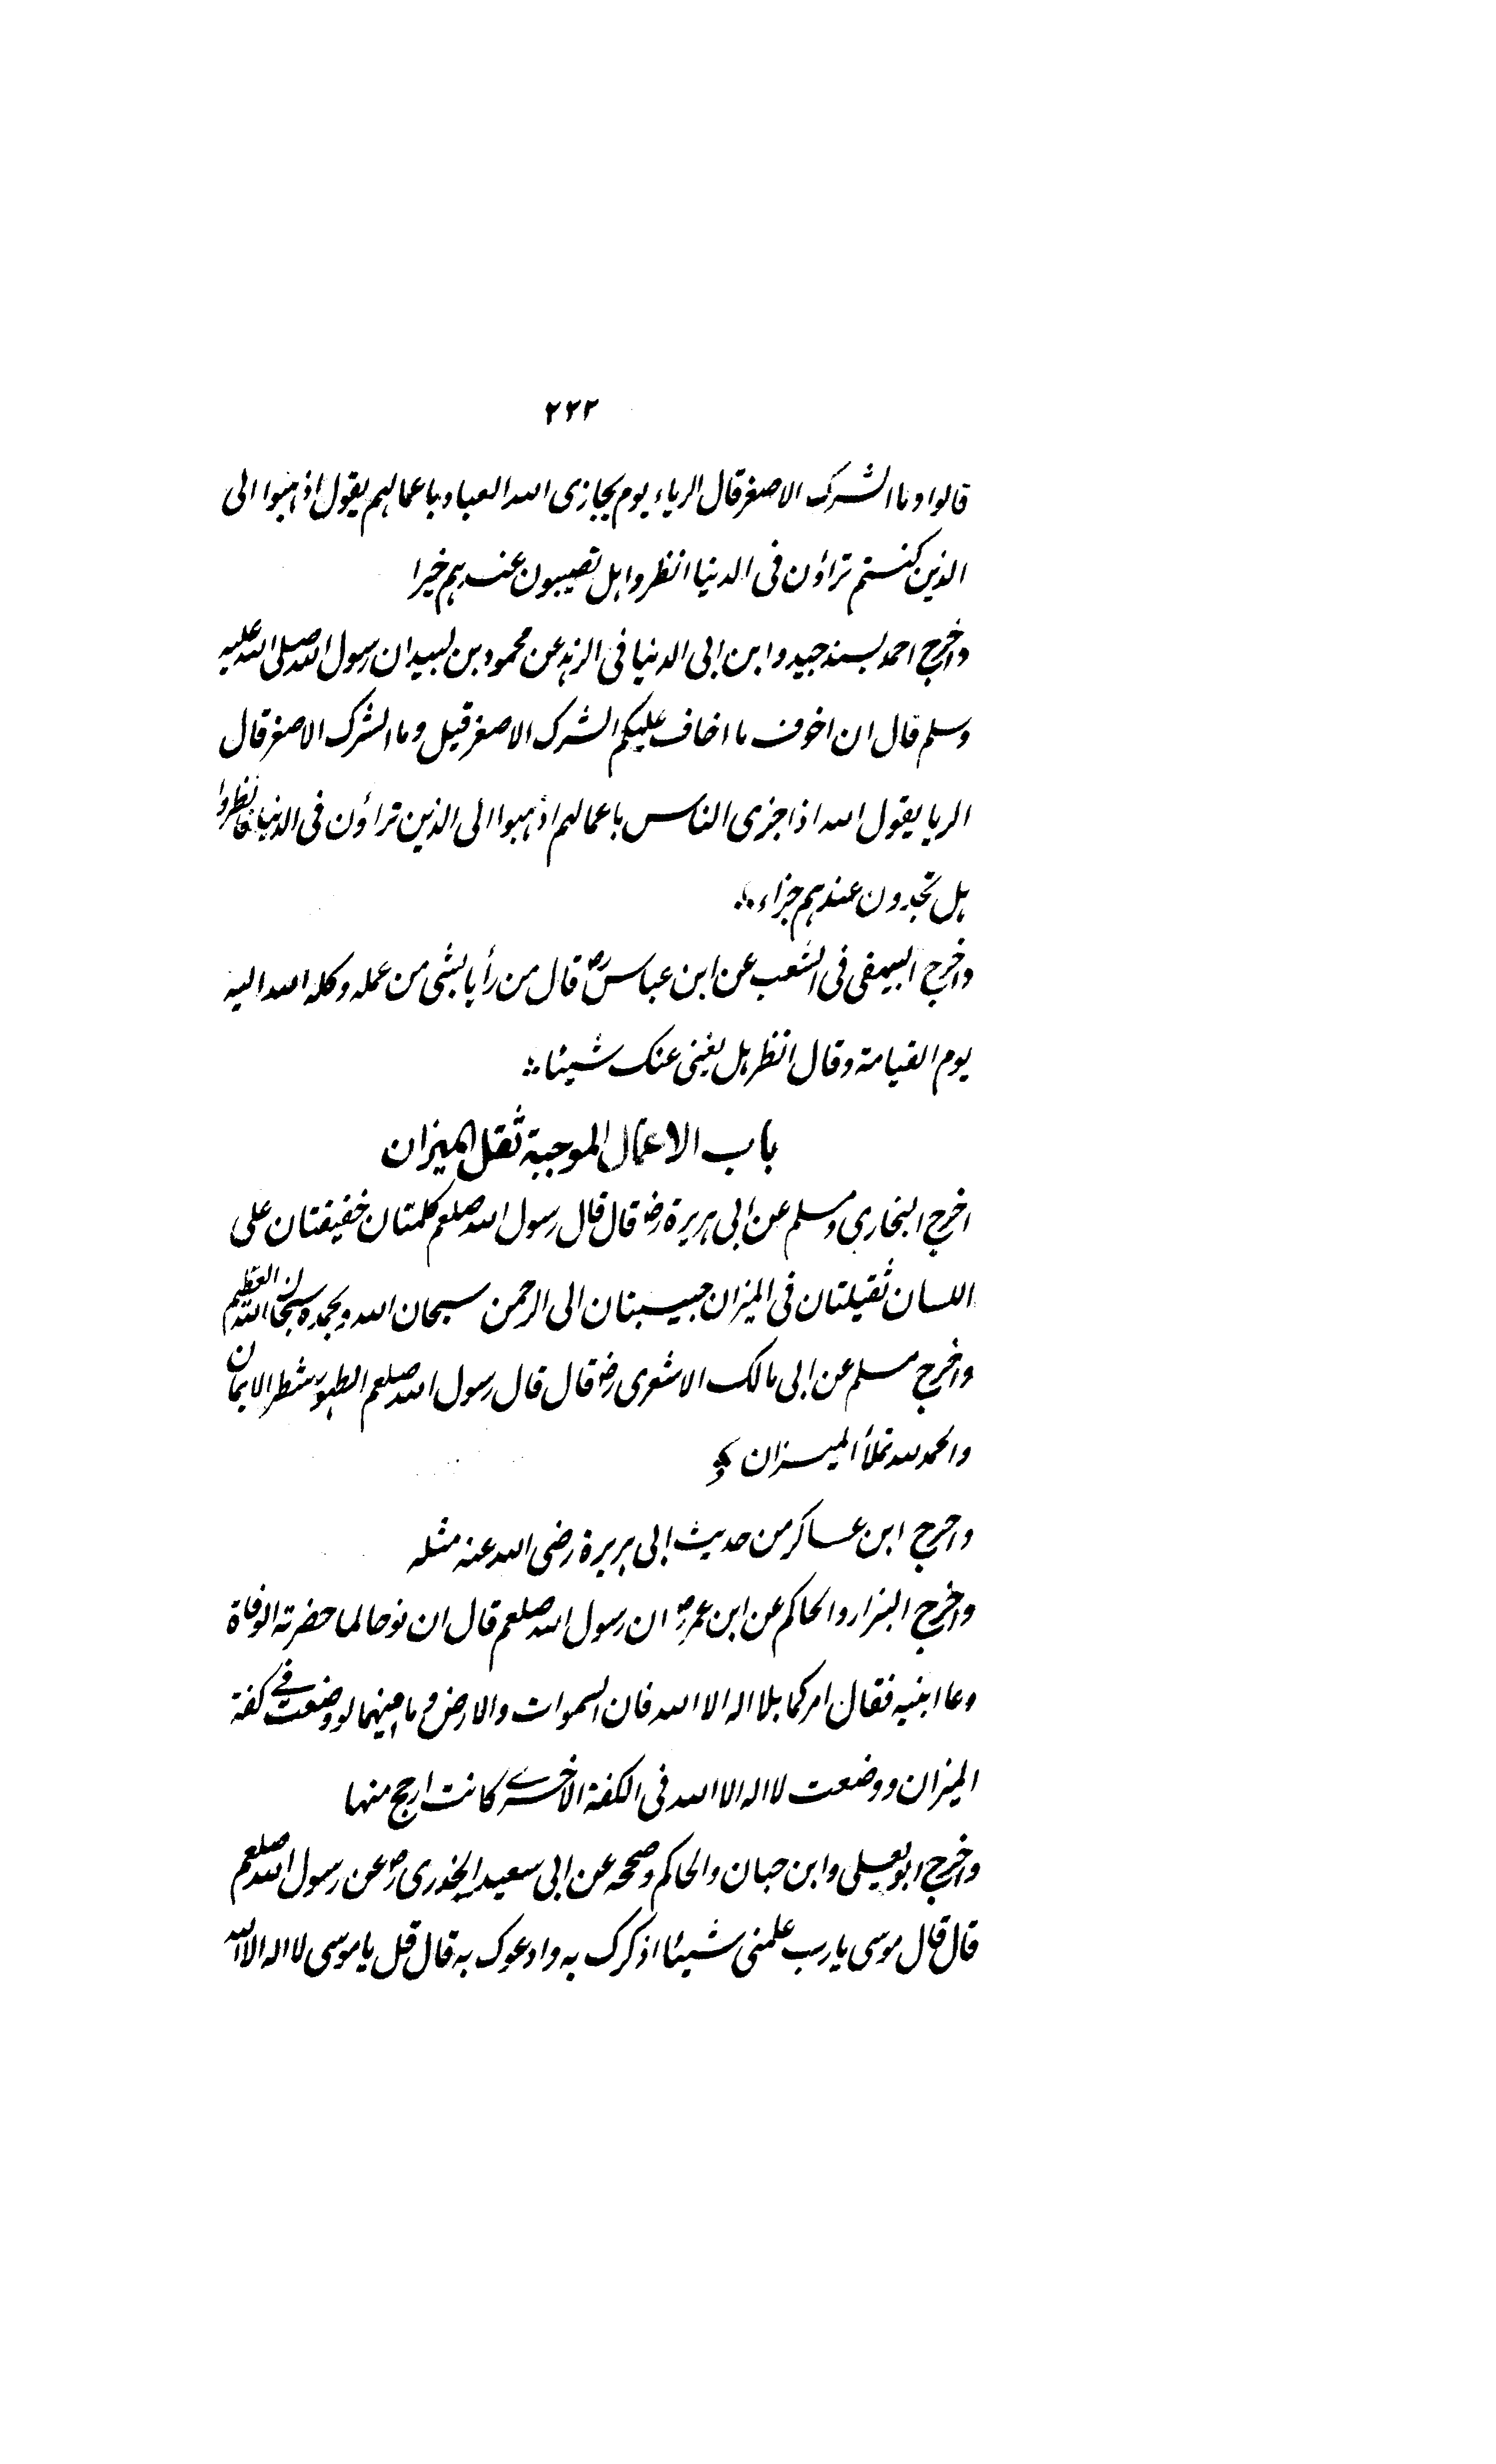 ٢٢٢
قالوا وما الشرك الاصغر قال الرياء يوم يجازى الله العباد باعمالهم يقول اذهبوا الى
الذين كنتم تراؤن فى الدنيا انظروا هل تصيبون عندهم خيرا
واخرج احمد بسند جيد وابن ابى الدنيا فى الزهد عن محمود بن لبيد ان رسول الله صلى الله عليه
وسلم قال ان اخوف ما اخاف عليكم الشرك الاصغر قيل وما الشرك الاصغر قال
الريا يقول الله اذا جزى الناس باعمالهم اذهبوا الى الذين تراؤن فى الدنيا فانظروا
هل تجدون عندهم جزاء
واخرج البيهقى فى الشعب عن ابن عباس رض قال من رأيا بشئ من عمله وكله الله اليه
يوم القيامة وقال انظر هل يغنى عنك شيئا
باب الاعمال الموجبة ثقل الميزان
اخرج البخارى ومسلم عن ابى هريرة رض قال قال رسول الله صلعم كلمتان خفيفتان على
اللسان ثقيلتان فى الميزان حبيبتان الى الرحمن سبحان الله وبحمده سبحان الله العظيم
واخرج مسلم عن ابى مالك الاشعرى رض قال قال رسول الله صلعم الطهور شطر الايمان
والحمد لله تملأ الميزان
واخرج ابن عساكر من حديث ابى هريرة رضى الله عنه مثله
واخرج البزار والحاكم عن ابن عمر رض ان رسول الله صلعم قال ان نوحا لما حضرته الوفاة
دعا ابنيه فقال امركما بلا اله الا الله فان السموات والارض وما بينهما لو وضعت فى كفة
الميزان ووضعت لا اله الا الله فى الكفة الاخرى كانت ارجح منها
واخرج ابو يعلى وابن حبان والحاكم وصححه عن ابى سعيد الخدرى رض عن رسول الله صلعم
قال قال موسى يا رب علمنى شيئا اذكرك به وادعوك به قال قل يا موسى لا اله الا الله